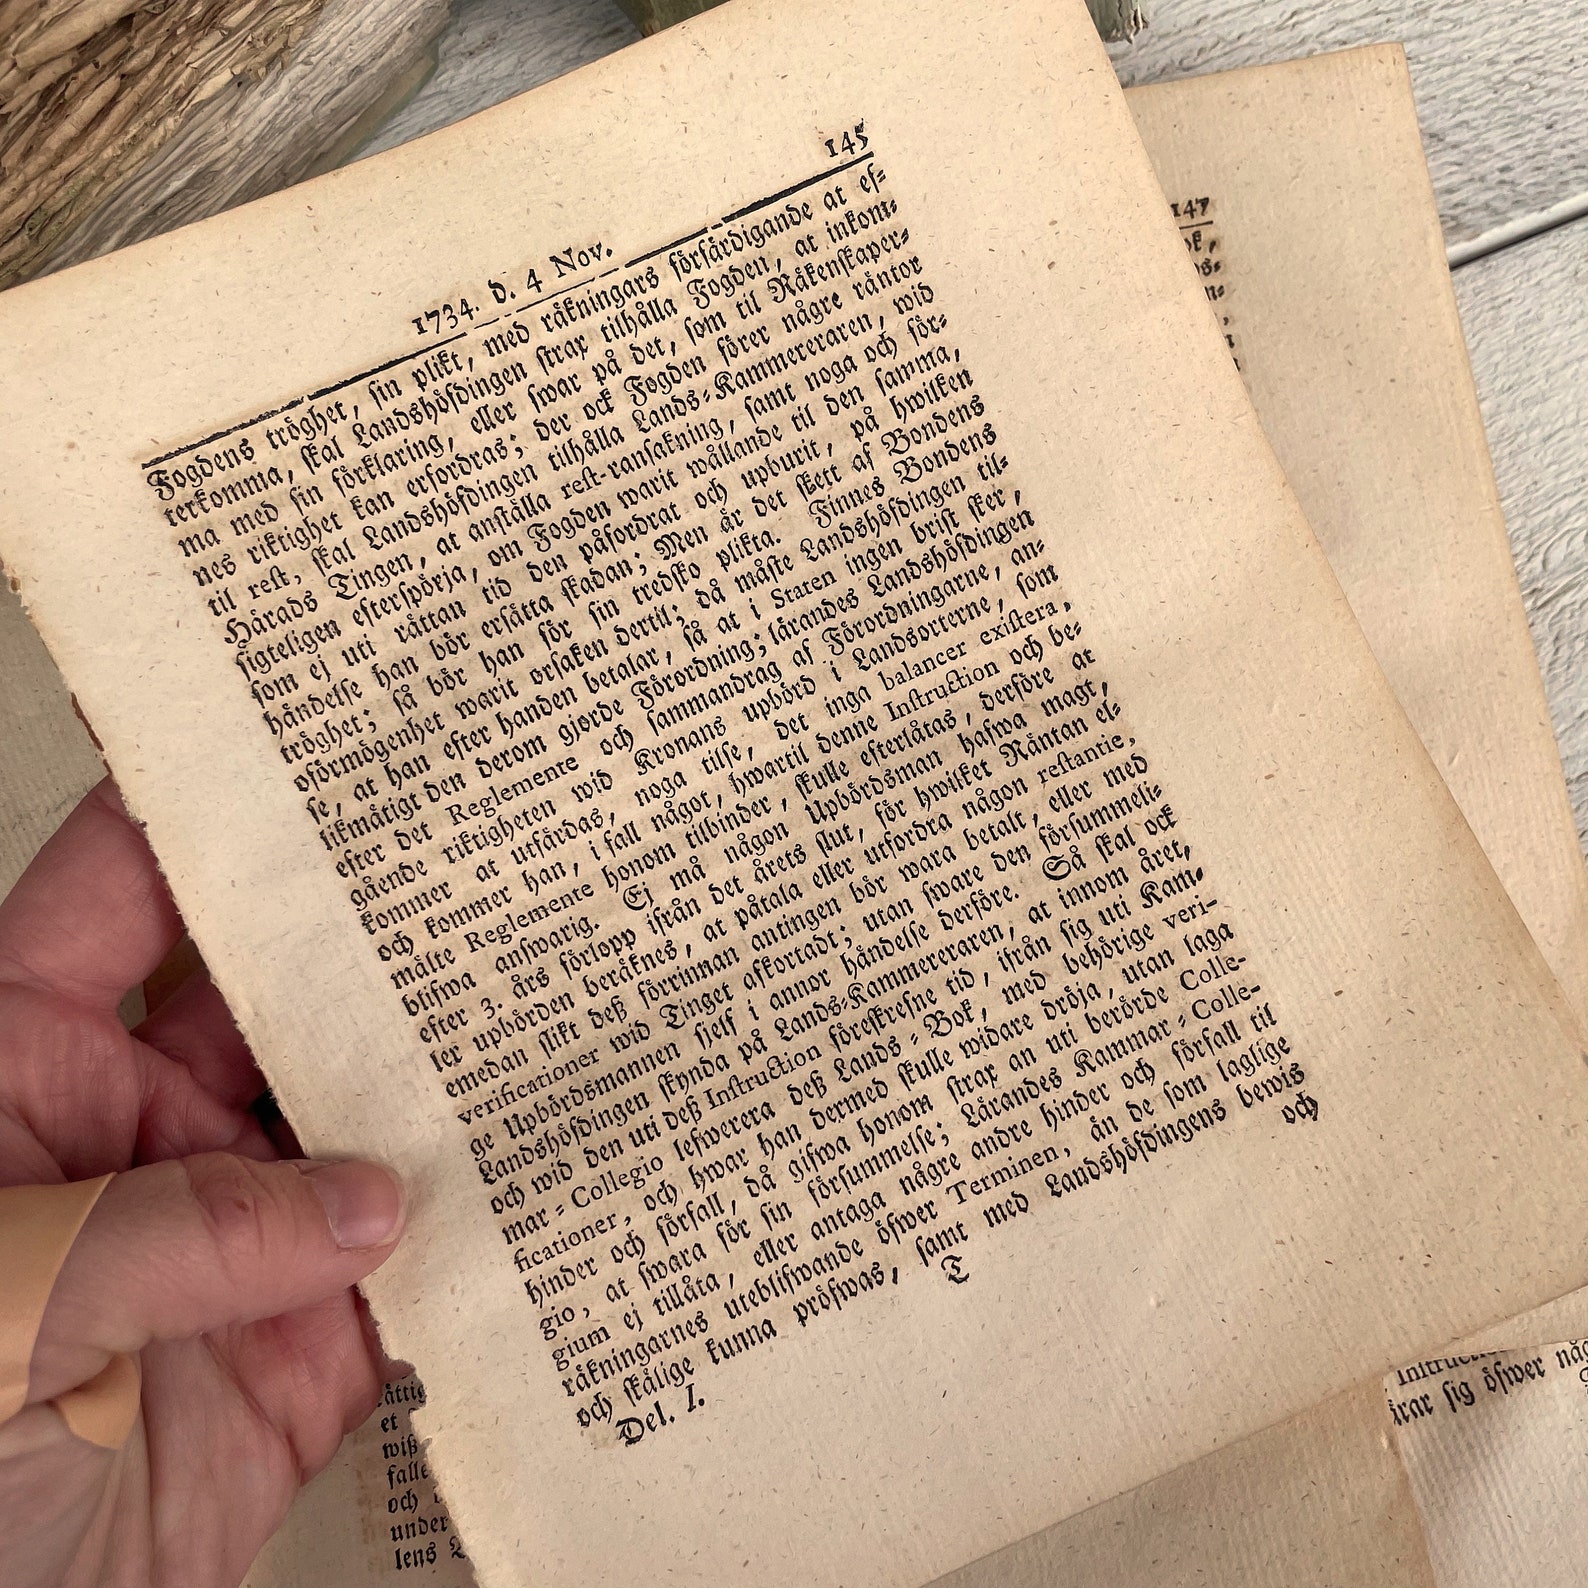 145
1734. d. 4 Nov.
Fogdens tröghet, sin plikt, med råkningars förfårdigande at ef⸗
terkomma, skal Landshöfdingen strax tilhålla Fogden, at inkom⸗
ma med sin förklaring, eller swar på det, som til Råkenskaper⸗
nes riktighet kan erfordras; der ock Fogden förer några råntor
til rest, skal Landshöfdingen tilhålla Lands⸗Kammereraren, wid
Hårads Tingen, at anstålla rest-ransakning, samt noga och för⸗
sigteligen efterspörja, om Fogden warit wållande til den samma,
som ej uti råttan tid den påfordrat och upburit, på hwilken
håndelse han bör ersåtta skadan; Men år det skett af Bondens
tröghet; så bör han för sin tredsko plikta. Finnes Bondens
oförmögenhet warit orsaken dertil; då måste Landshöfdingen til⸗
se, at han efter handen betalar, så at i Staten ingen brist sker,
likmåtigt den derom gjorde Förordning; lårandes Landshöfdingen
efter det Reglemente och sammandrag af Förordningarne, an⸗
gående riktigheten wid Kronans upbörd i Landsorterne, som
kommer at utfårdas, noga tilse, det inga balancer existera,
och kommer han, i fall något, hwartil denne Instruction och be⸗
målte Reglemente honom tilbinder, skulle efterlåtas, derföre at
blifwa answarig. Ej må någon Upbördsman hafwa magt,
efter 3. års förlopp ifrån det årets slut, för hwilket Råntan el⸗
ler upbörden beråknes, at påtala eller utfordra någon restantie,
emedan slikt deß förrinnan antingen bör wara betalt, eller med
verificationer wid Tinget afkortadt; utan sware den försummeli⸗
ge Upbördsmannen sjelf i annor håndelse derföre. Så skal ock
Landshöfdingen skynda på Lands⸗Kammereraren, at innom året,
och wid den uti deß Instruction föreskrefne tid, ifrån sig uti Kam⸗
mar⸗Collegio lefwerera deß Lands⸗Bok, med behörige veri-
ficationer, och hwar han dermed skulle widare dröja, utan laga
hinder och förfall, då gifwa honom strax an uti berörde Colle-
gio, at swara för sin försummelse; Lårandes Kammar⸗Colle-
gium ej tillåta, eller antaga någre andre hinder och förfall til
råkningarnes uteblifwande öfwer Terminen, ån de som laglige
och skålige kunna pröfwas, samt med Landshöfdingens bewis
Del. I.
T
och
147
et
wiß
falle
och
under
lens
Instructi
krar sig öfwer någ